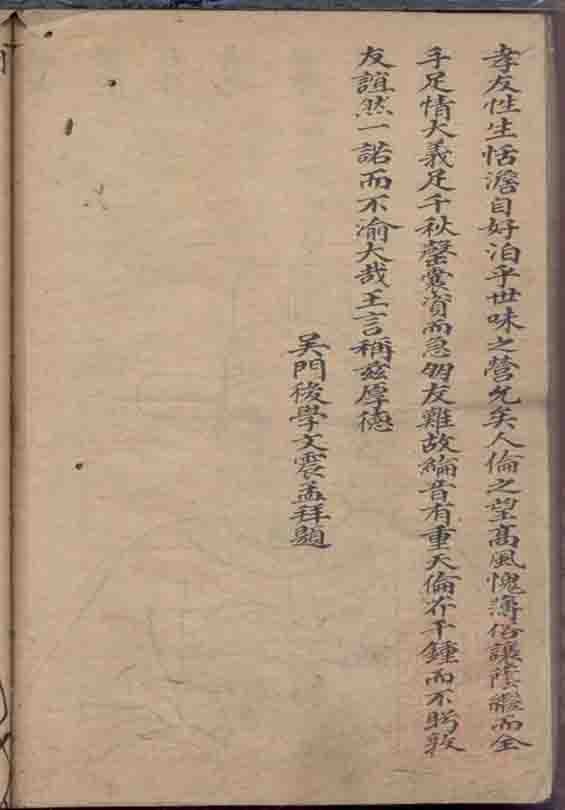 孝友性生恬澹自好泊乎世味之營允矣人倫之望高風愧薄俗讓蔭繼而全
手足情大義足千秋罄囊資而急朋友難故綸音有重天倫芥千鍾而不盻敦
友誼然一諾而不渝大哉王言稱茲厚德
吳門後學文震孟拜題